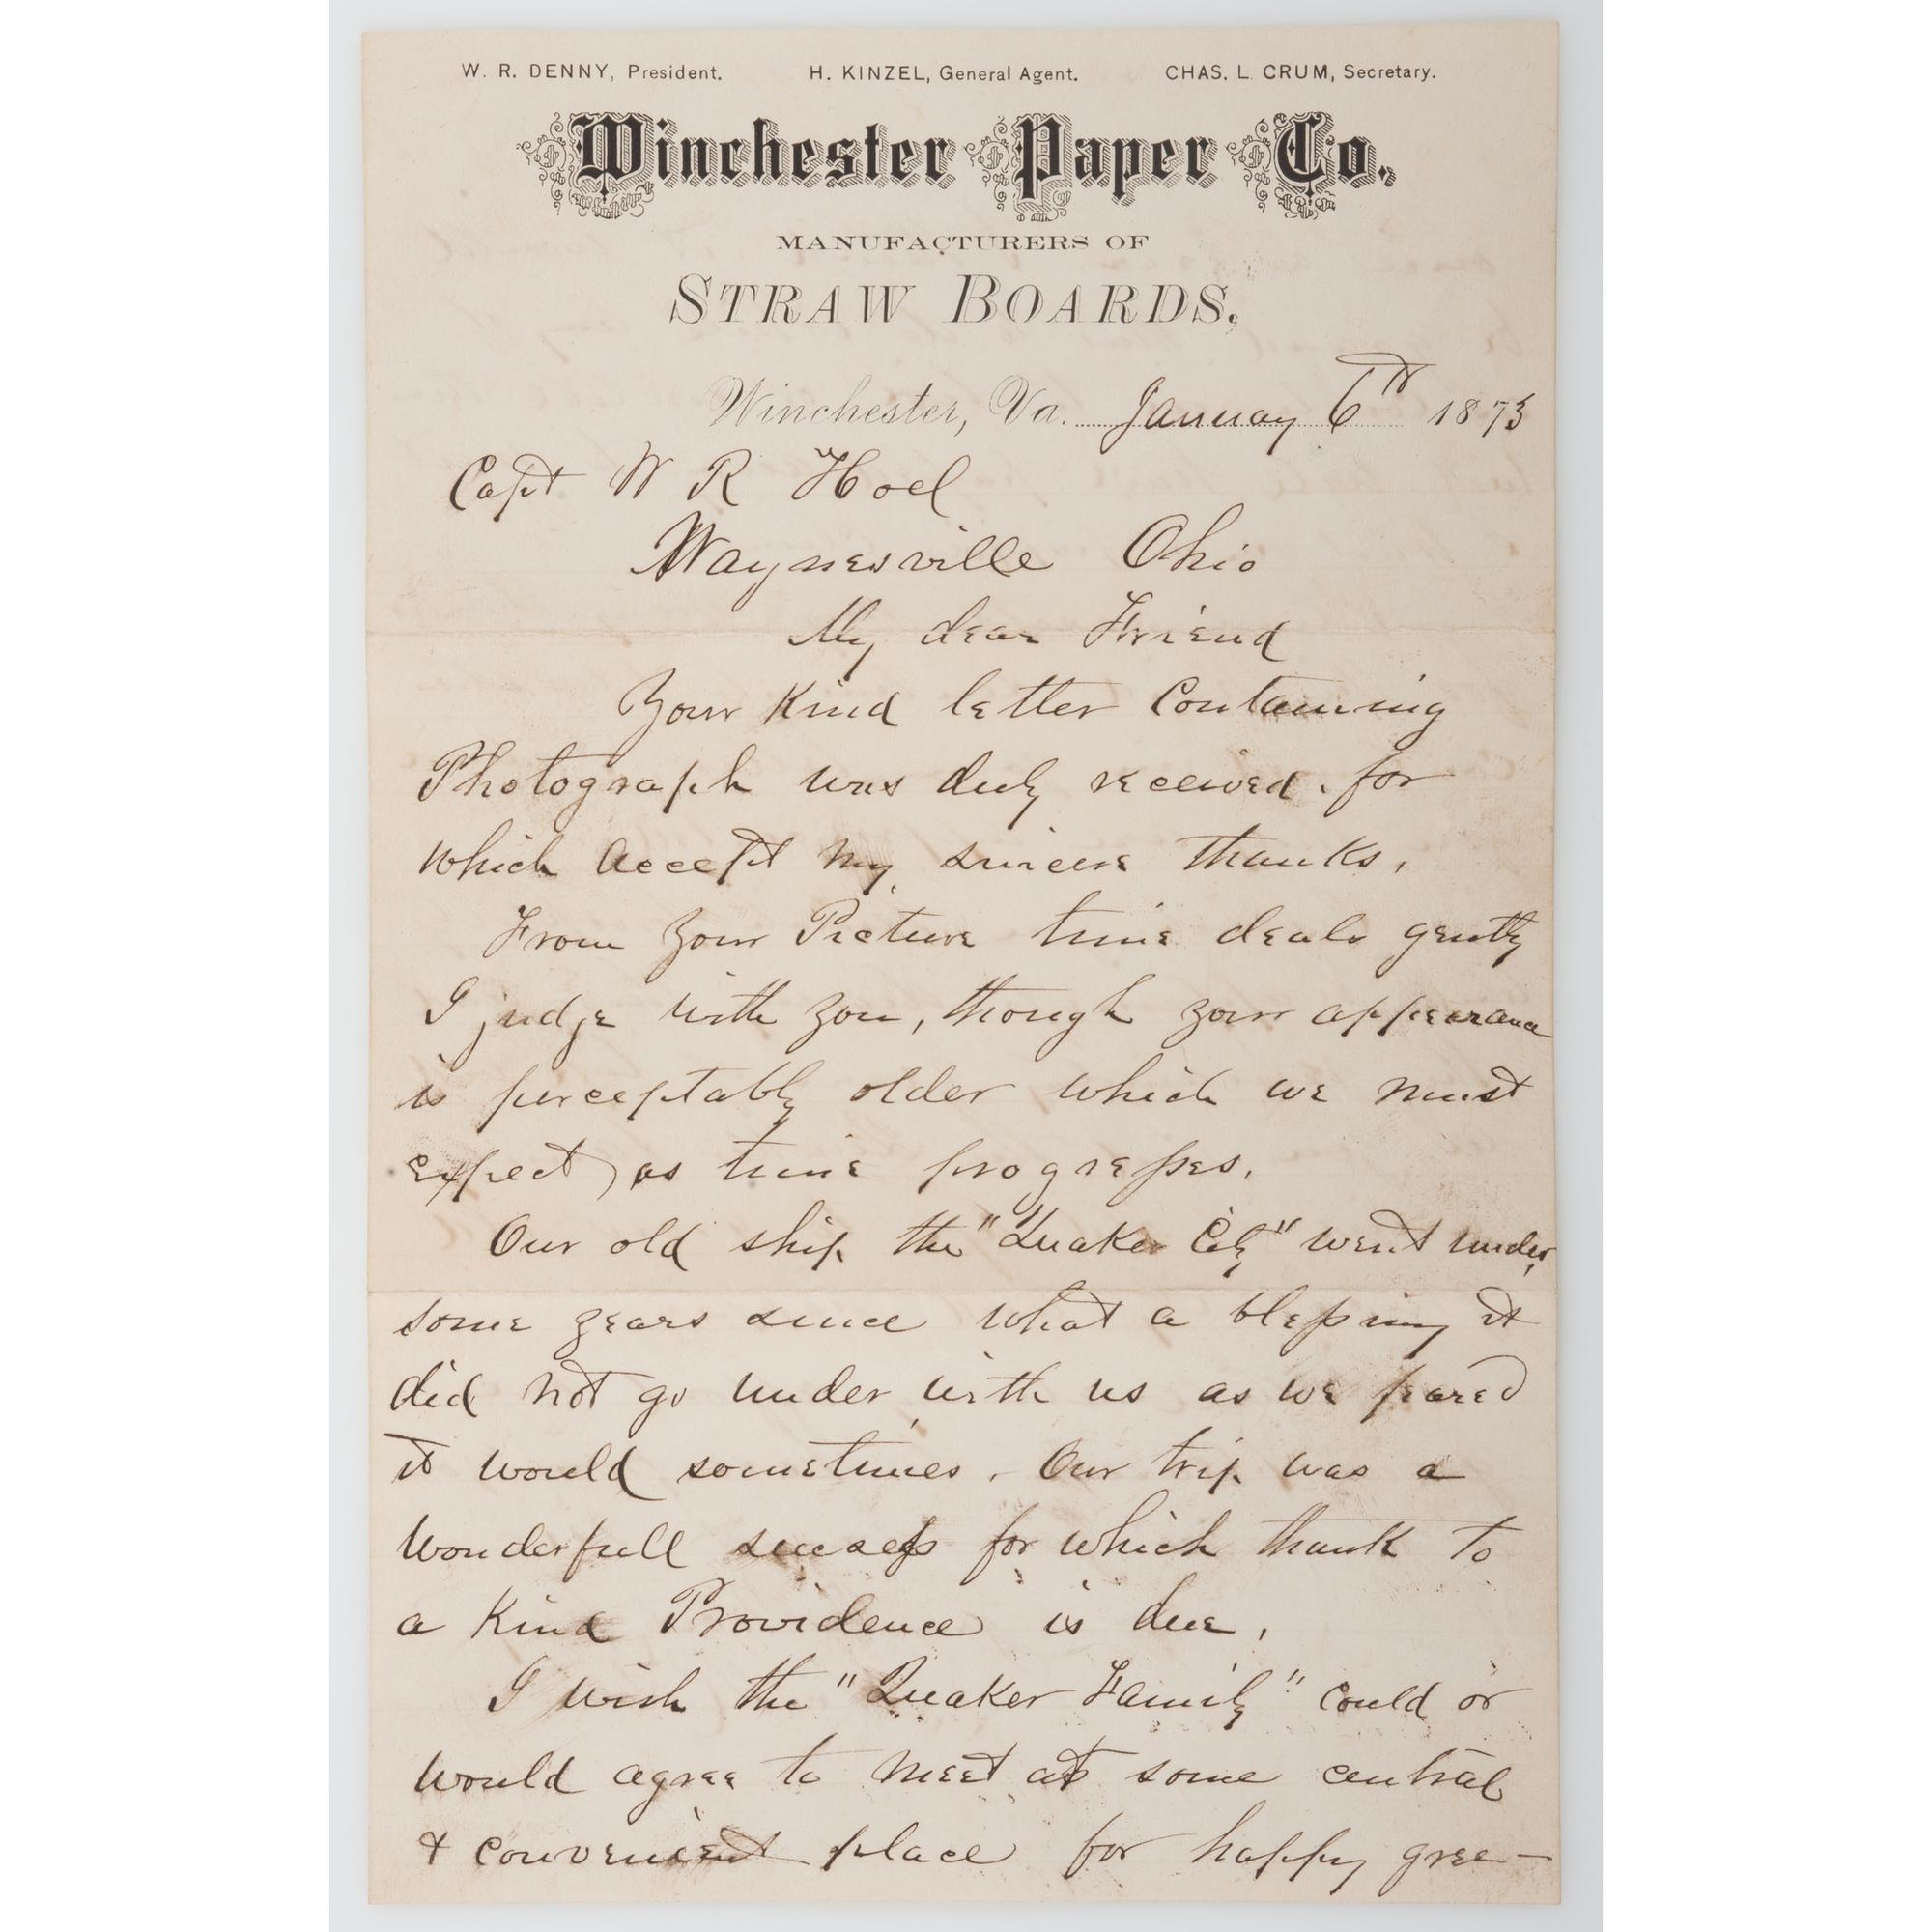 W. R. DENNY, President. H. KINZEL, General Agent. CHAS. L. CRUM, Secretary.
Winchester Paper Co.,
MANUFACTURERS OF
STRAW BOARDS,
Winchester, Va. January 6th 1873
Capt W R Hoel
Waynesville Ohio
My dear Friend
Your Kind letter Containing
Photograph was duly received. for
which accept my sincere thanks.
From your Picture time deals gently
I judge with you, though your appearance
is perceptably older which we must
expect, as time progresses.
Our old ship the "Quaker City" went under,
some years since what a blessing it
did not go under with us as we feared
it would sometimes. Our trip was a
wonderfull success for which thank to
a Kind Providence is due,
I wish the "Quaker Family" could or
would agree to meet at some central
& convenient place for happy gree-